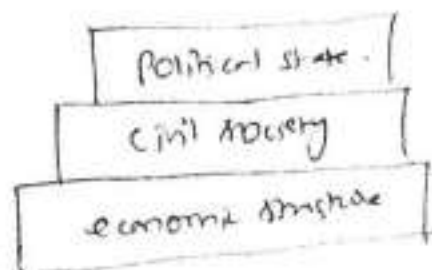 Political state.
Civil society
economic structure